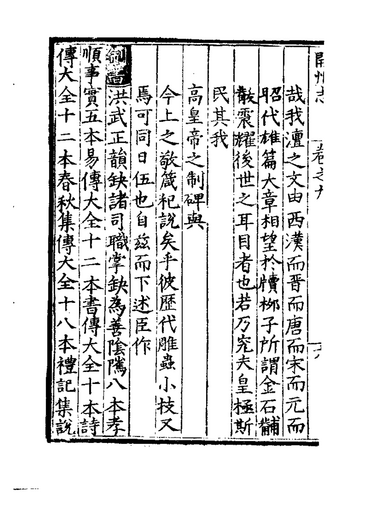 開州志 卷之九
哉我澶之文由西漢而晋而唐而宋而元而
昭代雄篇大章相望於牘栁子所謂金石黼
黻震耀後世之耳目者也若乃究夫皇極斯
民其我
高皇帝之制碑與
今上之敬箴祀説矣乎彼歷代雕蟲小技又
焉可同日伍也自兹而下述臣作
制書洪武正韻缺諸司職掌缺為善陰隲八本孝
順事實五本易傳大全十二本書傳大全十本詩
傳大全十二本春秋集傳大全十八本禮記集説